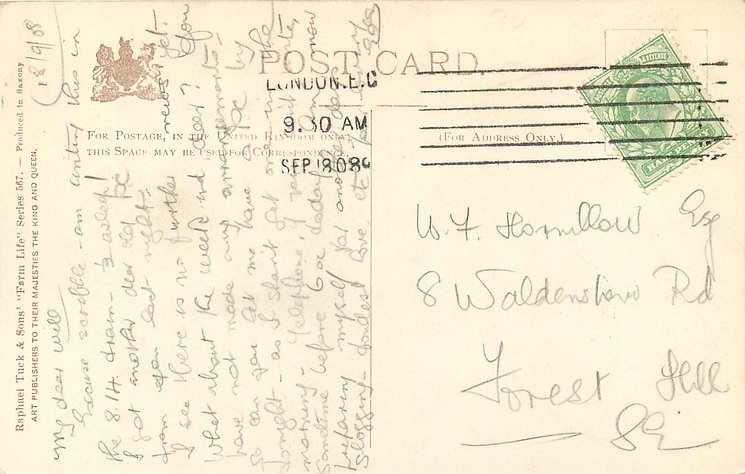 Raphael Tuck & Sons' "Farm Life" Series 567. — Produced in Saxony
ART PUBLISHERS TO THEIR MAJESTIES THE KING AND QUEEN.
POST CARD.
FOR POSTAGE, IN THE UNITED KINGDOM ONLY,
THIS SPACE MAY BE USED FOR CORRESPONDENCE.
(FOR ADDRESS ONLY.)
LONDON.E.C
9.30 AM
SEP 18 08
(18/9/08
My dear Will
Excuse scribble - am writing this in
the 8.14 train - ½ asleep!
I got another dear old PC
from you last night.
I see there is no further news yet.
What about the week end dear? You
have not made any arrangements.
So can you let me have a PC by
tonight - as I shant get one in the
morning - telephone, if you it
Sometime before 6 oc today. Am now
preparing myself for another day
Slogging - fondest love etc
W. F. Hornillow Esq
8 Waldenshaw Rd
Forest Hill
SE